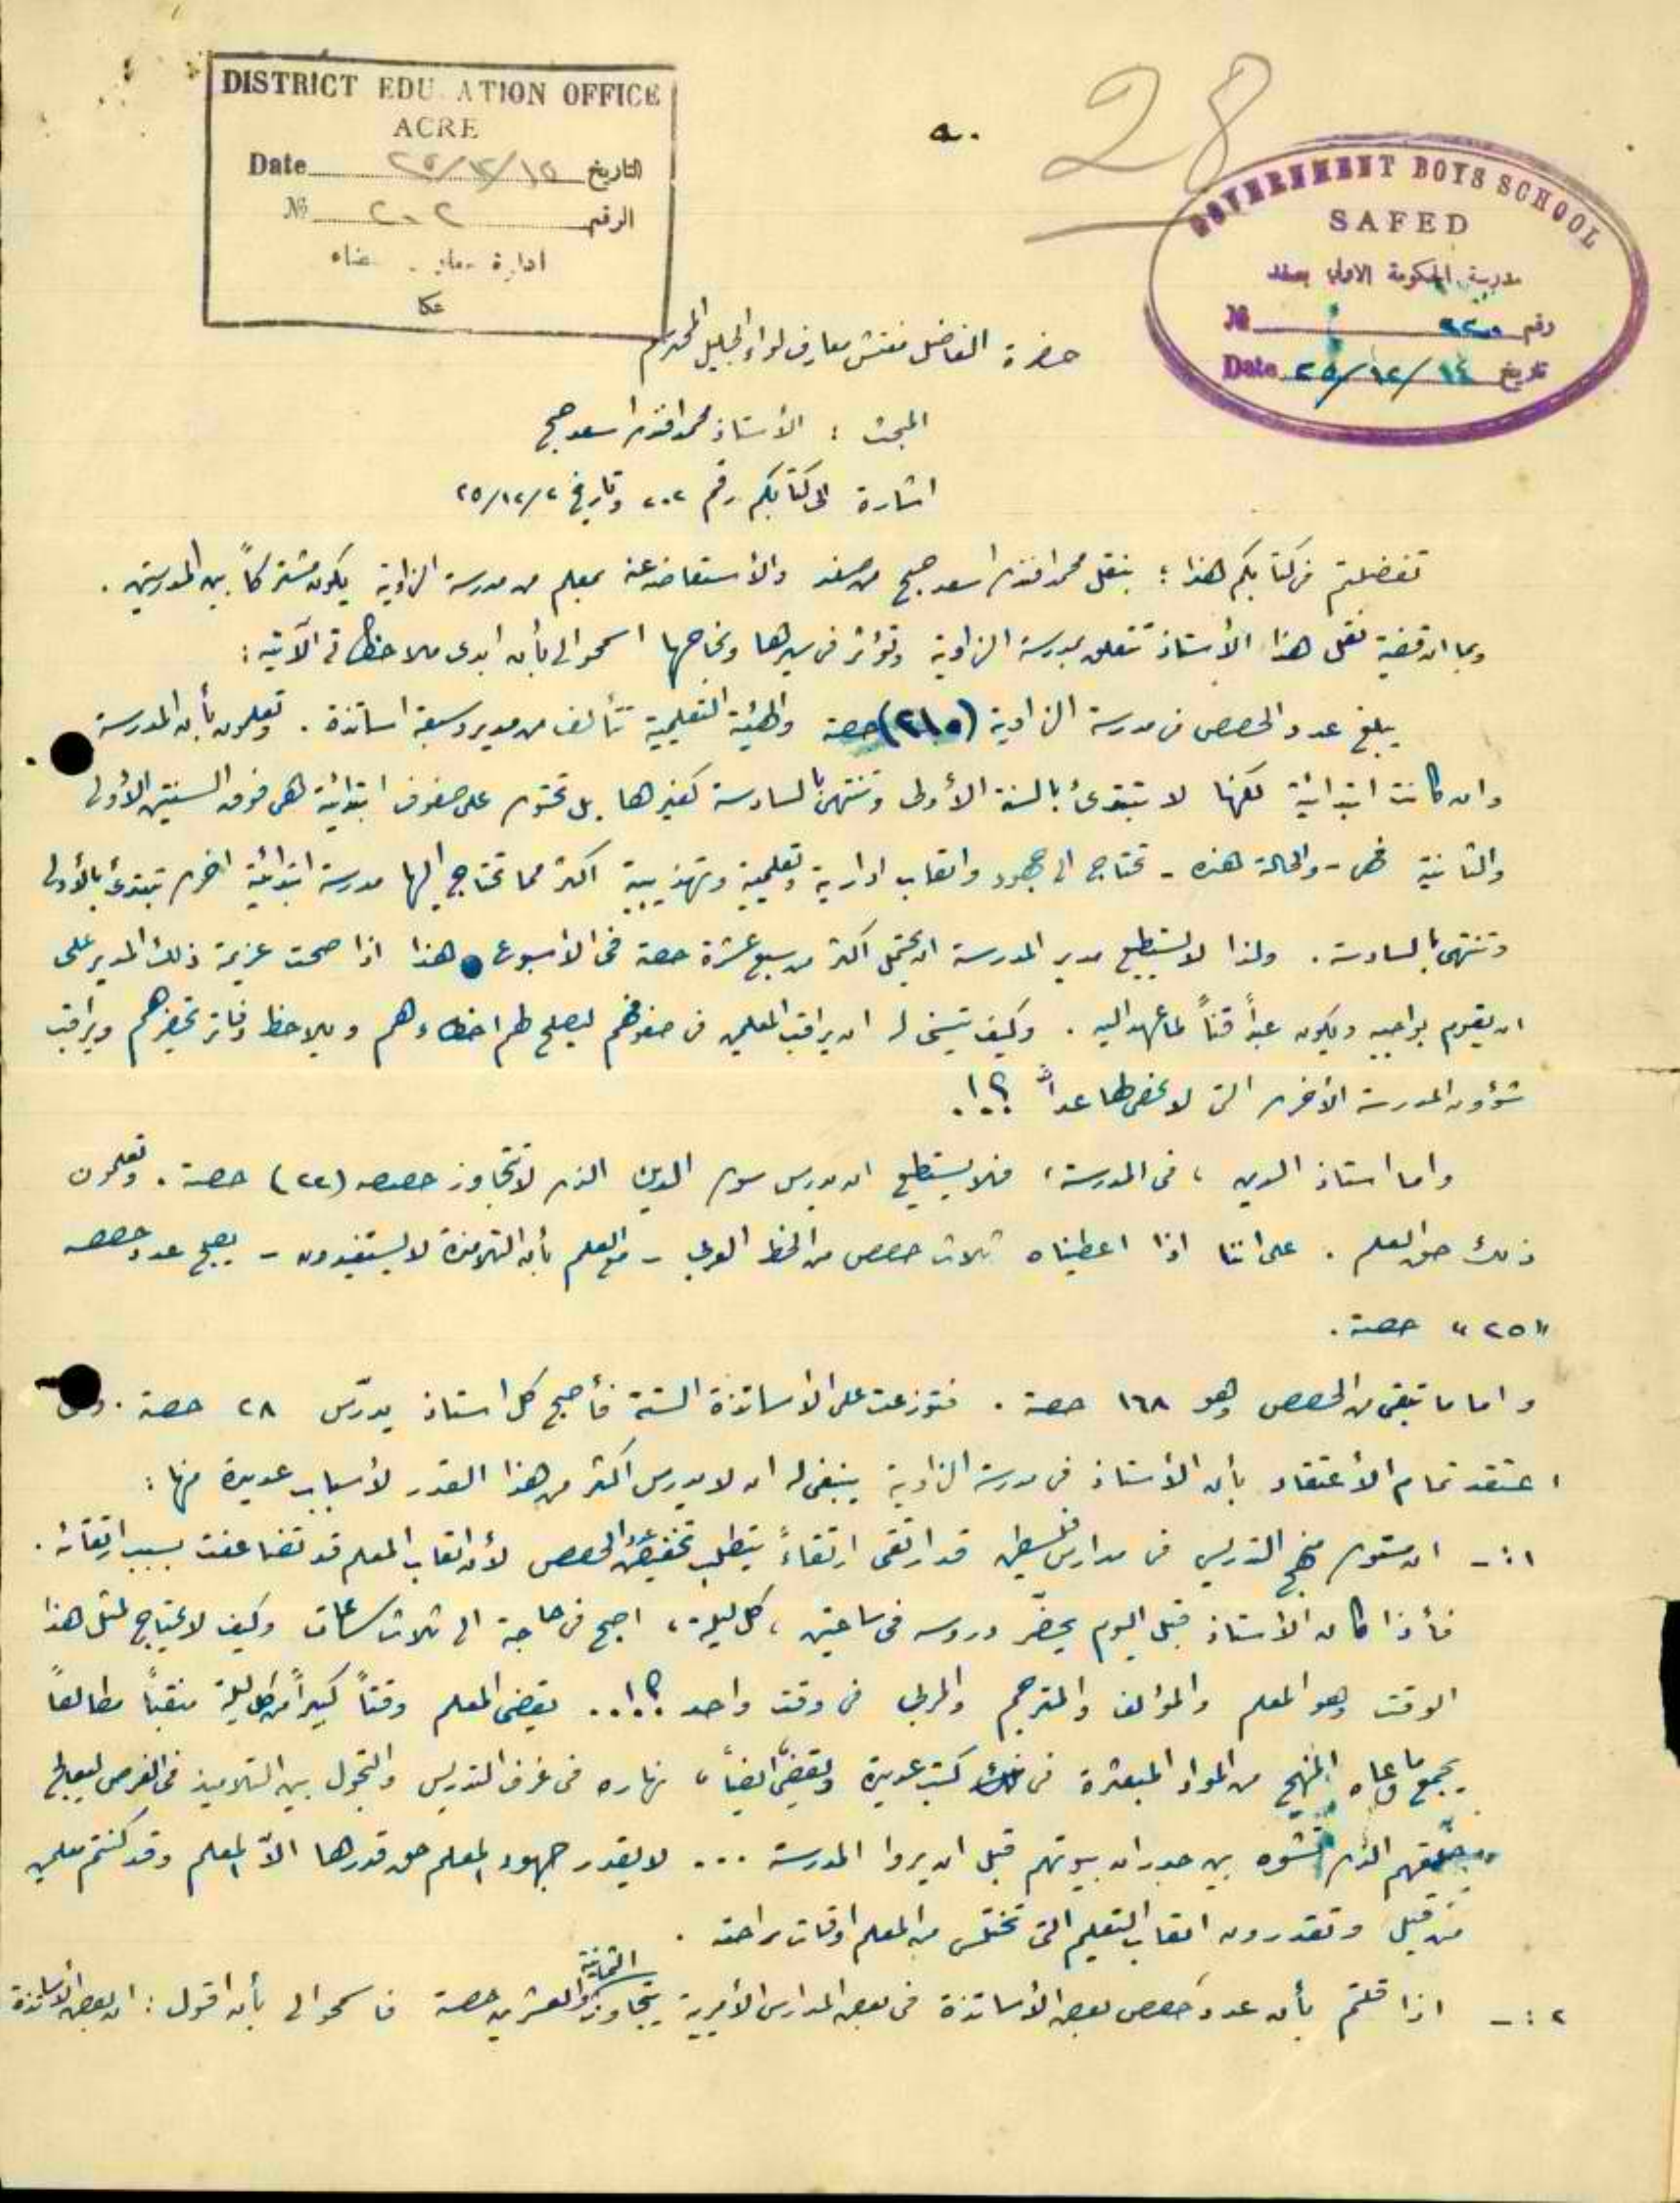 28
DISTRICT EDU ATION OFFICE
ACRE
Date ٢٥/١٢/١٥ التاريخ
№ ٢٠٢ الرقم
ادارة
عكا
GOVERNMENT BOYS SCHOOL
SAFED
مدرسة الحكومة الاميرية بصفد
№ رقم
Date ٢٥/١٢/١٤ تاريخ
حضرة الفاضل مفتش معارف لواء الجليل المحترم
المبحث : الأستاذ محمد افندي اسعد صبح
اشارة الى كتابكم رقم ٢٠٢ وتاريخ ٢٥/١٢/٢
تفضلتم في كتابكم هذا ؛ بنقل محمد افندي اسعد صبح من صفد والأستعاضة عنه بمعلم من مدرسة الزاوية يكون مشتركاً بين المدرستين .
وبما ان قضية نقل هذا الأستاذ تتعلق بمدرسة الزاوية وتؤثر في سيرها ونجاحها اسمحوا لي بأن ابدي ملاحظاتي الآتية :
يبلغ عدد الحصص في مدرسة الزاوية (٢١٠) حصة والهيئة التعليمية تتألف من مدير وسبعة اساتذة . وتعلمون بأن المدرسة
وان كانت ابتدائية لكنها لا تبتدئ بالسنة الأولى وتنتهي بالسادسة كغيرها بل تحتوي على صفوف ابتدائية هي فوق السنتين الأولى
والثانية فهي - والحالة هذه - تحتاج الى جهود واتعاب ادارية وتعليمية وتهذيبية اكثر مما تحتاج اليها مدرسة ابتدائية اخرى تبتدئ بالأولى
وتنتهي بالسادسة . ولذا لا يستطيع مدير المدرسة ان يحتمل اكثر من سبع عشرة حصة في الاسبوع هذا اذا صحت عزيمة ذلك المدير على
ان يقوم بواجبه ويكون عبداً قناً لما عهد اليه . وكيف يتسنى له ان يراقب المعلمين في صفوفهم ليصلح لهم اخطاءهم ويلاحظ دفاتر تحضيرهم ويراقب
شؤون المدرسة الأخرى التي لا يحصى لها عداً ؟!.
واما استاذ الدين ، في المدرسة ، فلا يستطيع ان يدرس سوى الدين الذي لا تتجاوز حصصه (٢٢) حصة . وتعلمون
ذلك حق العلم . على اننا اذا اعطيناه ثلاث حصص من الخط العربي - مع العلم بأن التلامذة لا يستفيدون - يصبح عدد حصصه
"٢٥" حصة .
واما ما تبقى من الحصص وهو ١٦٨ حصة . فتوزعت على الاساتذة الستة فأصبح كل استاذ يدرّس ٢٨ حصة .
اعتقد تمام الأعتقاد بأن الأستاذ في مدرسة الزاوية ينبغي له ان لا يدرس اكثر من هذا القدر لأسباب عديدة منها :
١ :- ان مستوى منهج التدريس في مدارس فلسطين قد ارتقى ارتقاءً يتطلب تخفيض عدد الحصص لأن اتعاب المعلم قد تضاعفت بسبب ارتقائه .
فأذا كان الأستاذ قبل اليوم يحضّر دروسه في ساعتين ، كل ليلة ، اصبح في حاجة الى ثلاث ساعات وكيف لا يحتاج لمثل هذا
الوقت وهو المعلم والمؤلف والمترجم والمربي في وقت واحد ؟!... يقضي المعلم وقتاً كبيراً من كل ليلة منقباً مطالعاً
يجمع ما وعاه المنهج من المواد المبعثرة في كتب عديدة ويقضي ايضاً ، نهاره في غرف التدريس والتجول بين التلاميذ في الفرص ليعالج
الذي بين جدران بيوتهم قبل ان يروا المدرسة ... لا يقدر جهود المعلم حق قدرها الاّ المعلم وقد كنتم معلمين
من قبل وتقدرون اتعاب التعليم التي تختلس من المعلم اوقات راحته .
٢ :- اذا قلتم بأن عدد حصص بعض الأساتذة في بعض المدارس الأميرية يتجاوز الثمانية والعشرين حصة فاسمحوا لي بأن اقول : ان بعض الأساتذة